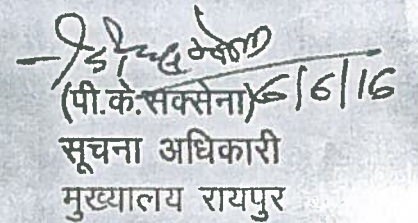 (पी.के.सक्सेना) 6/6/16
सूचना अधिकारी
मुख्यालय रायपुर